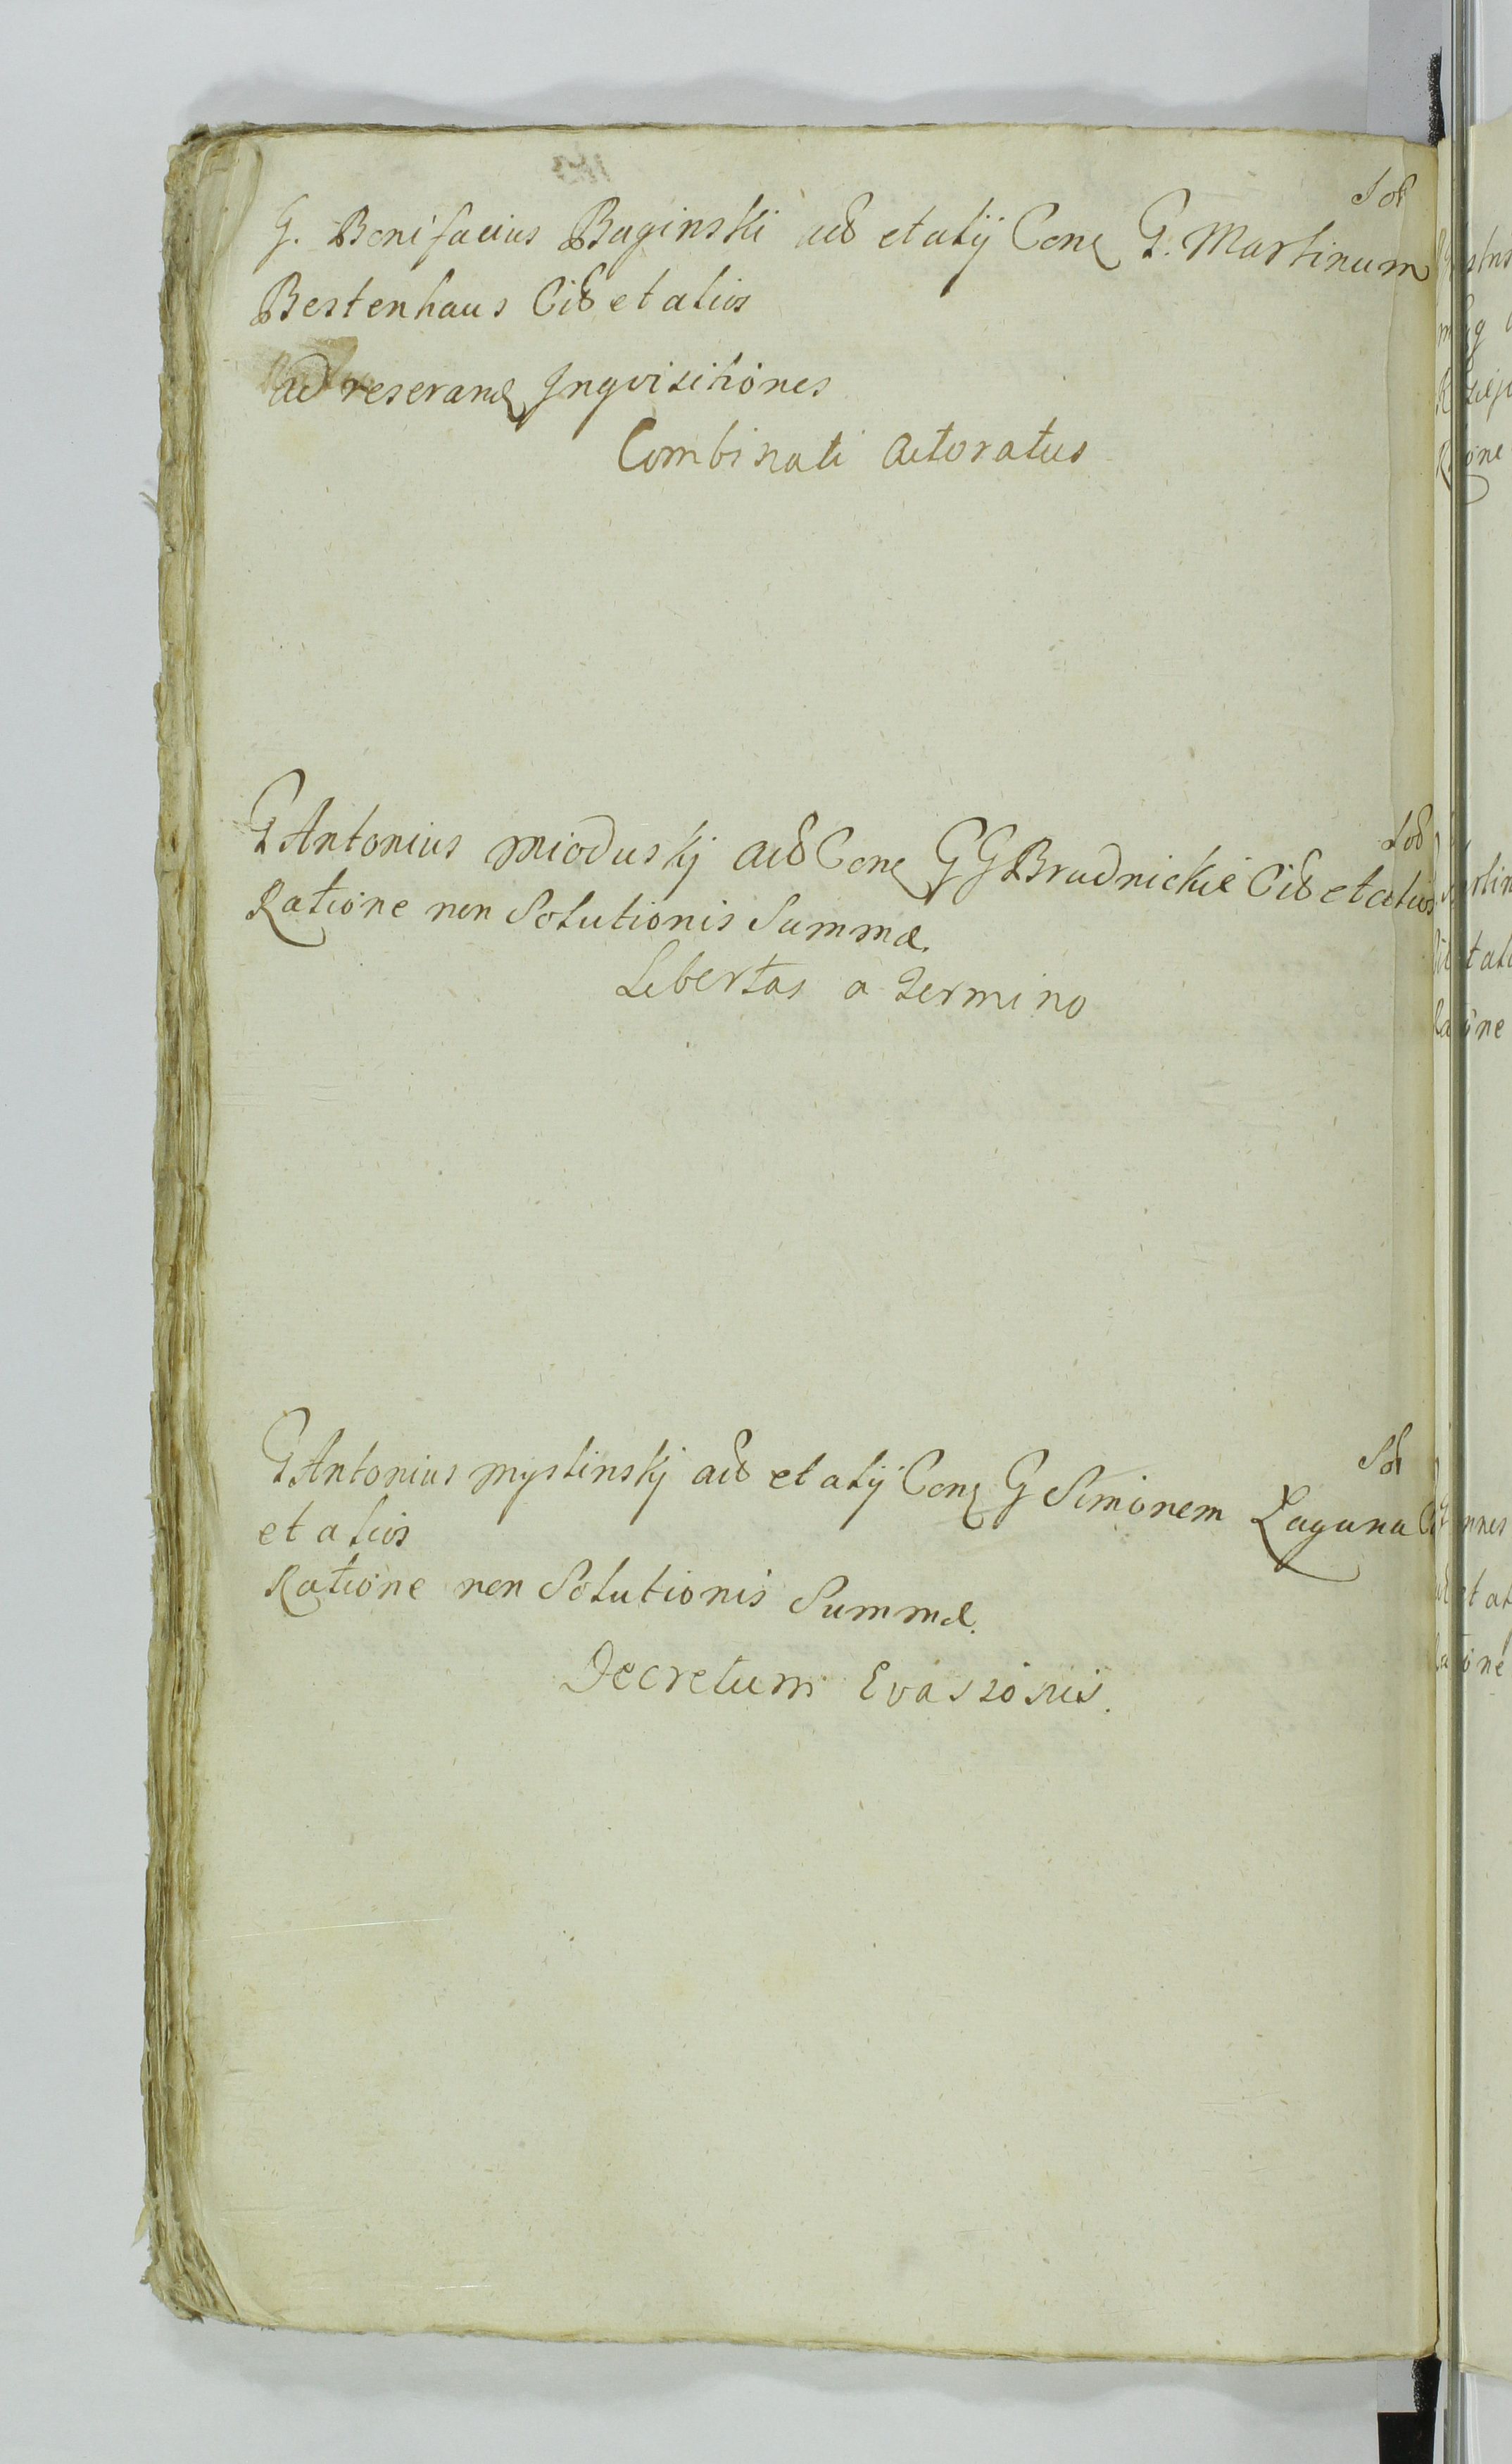 Sol
G. Bonifacius Baginski act et alij Con G. Martinum
Bestenhaus Cit et alios
Ad reserand Inqvisitiones
Combinati actoratus
Sol
G Antonius Mioduskj act Con GG Brudnickie Cit et alios
Ratione non Solutionis Summæ.
Libertas a Termino
Sol
G Antonius Myslinskj act et alij Con G Simonem Laguna Cit
et alios
Ratione non Solutionis Summæ.
Decretum Evasionis.